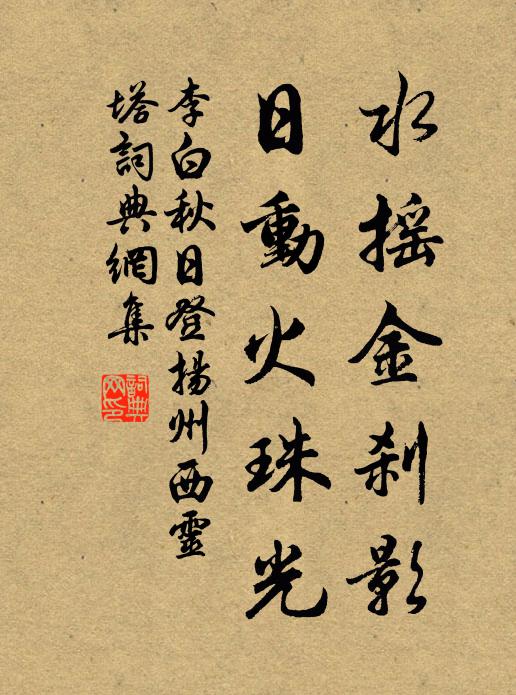 水摇金刹影
日動火珠光
李白秋日登揚州西靈
塔詞典網集
詞典网印